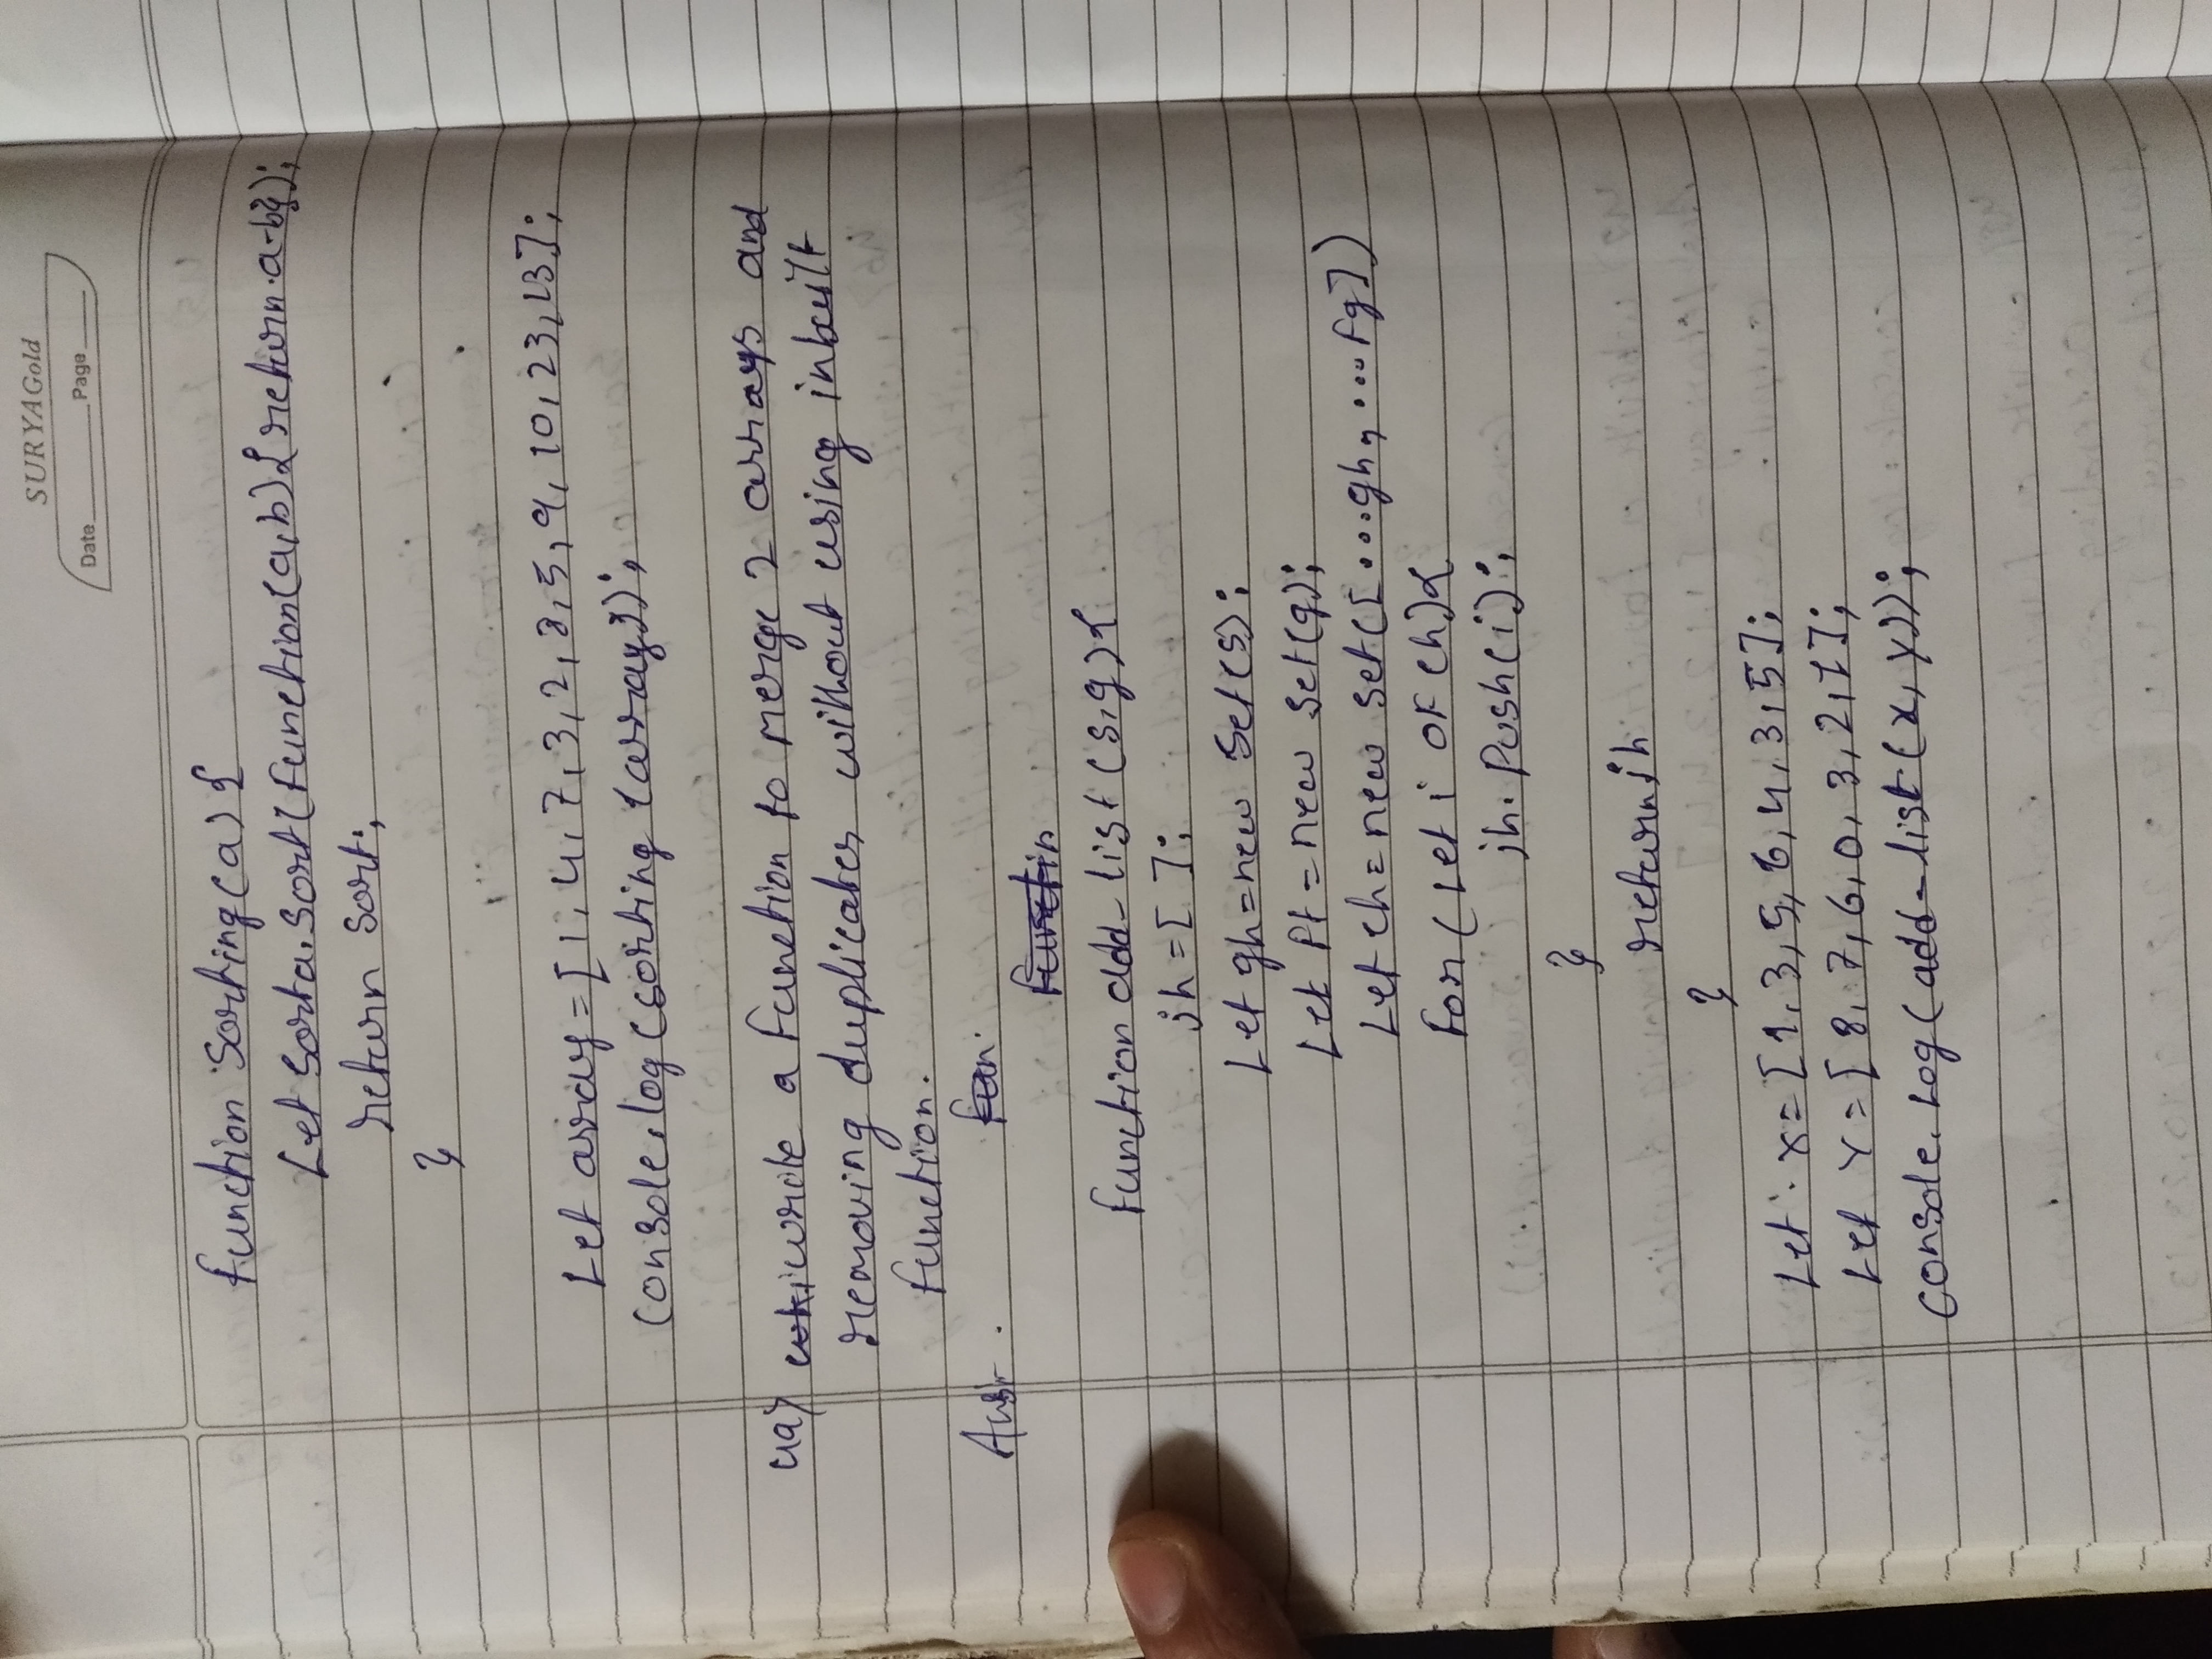 SURYAGold
Date Page
function sorting(a){
Let sort a.sort(function(a,b){return a-b});
return sort;
}
Let array=[1,4,7,3,2,3,5,9,10,23,13];
console.log(sorting(array));
write a function to merge 2 arrays and
removing duplicates without using inbuilt
function.
Ans-
function add-list(s,g){
jh=[];
Let gh=new Set(s);
Let Pt=new set(g);
Let ch=new set([...gh,...fg])
for(Let i of ch){
jh.push(i);
}
return jh
}
Let x=[1,3,5,6,4,3,5];
Let y=[8,7,6,0,3,2,1];
console.log(add-list(x,y));